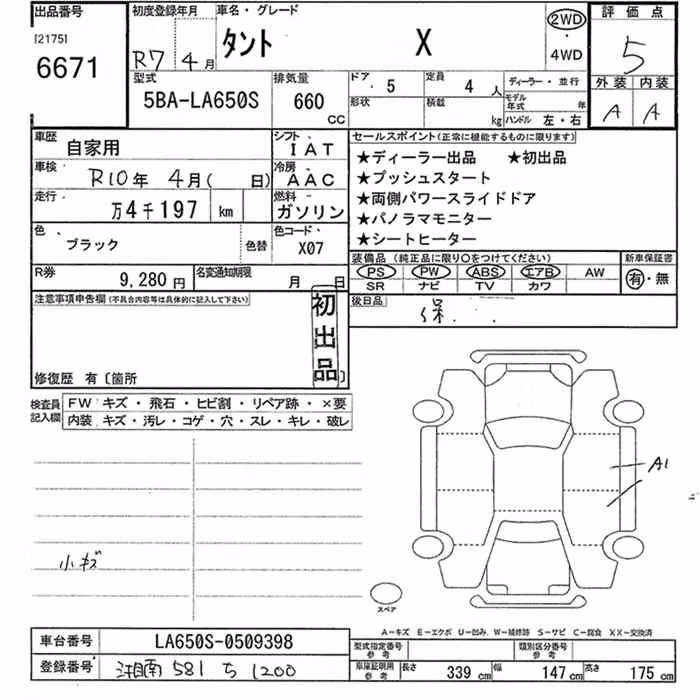 出品番号
[2175]
6671
初度登録年月
R7 4月
車名・グレード
タント X
2WD
・
4WD
評価点
5
外装 内装
A A
型式
5BA-LA650S
排気量
660
CC
ドア
5
定員
4 人
形状
積載
kg
ディーラー・並行
モデル年式 年
ハンドル 左・右
車歴
自家用
シフト
IAT
車検
R10年 4月( 日)
冷房
AAC
走行
万4千197 km
燃料
ガソリン
色
ブラック
色替
色コード
X07
R券
9,280 円
名変通知期限
月 日
セールスポイント(正常に機能するものに限ります)
★ディーラー出品 ★初出品
★プッシュスタート
★両側パワースライドドア
★パノラマモニター
★シートヒーター
装備品 (純正品に限り○をつけてください)
PS PW ABS エアB AW
SR ナビ TV カワ
新車保証書
有・無
後日品
保
注意事項申告欄(不具合内容等は具体的に記入して下さい)
初出品
修復歴 有〔箇所 〕
検査員記入欄
FW キズ・飛石・ヒビ割・リペア跡・×要
内装 キズ・汚レ・コゲ・穴・スレ・キレ・破レ
小キズ
A1
スペア
A-キズ E-エクボ U-凹み W-補修跡 S-サビ C-腐食 XX-交換済
車台番号
LA650S-0509398
登録番号
江南 581 ち 1200
型式指定番号
参考
類別区分番号
参考
車庫証明用
参考
長さ 339 cm 幅 147 cm 高さ 175 cm